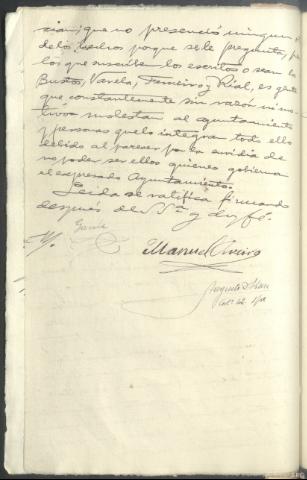 cian; que no presenció ningun
de los hechos porque se le pregunta,
los que suscriben los escritos o sean
Bustos, Varela, Ferreiro y Rial, es gente
que constantemente sin razon ni mo-
tivos molestan al ayuntamiento
y personas que lo integran todo ello
debido al parecer por la envidia de
no poder ser ellos quienes gobiernan
el expresado Ayuntamiento.
Leida se ratifica firmando
después de S Sª y doy fé.
Manuel